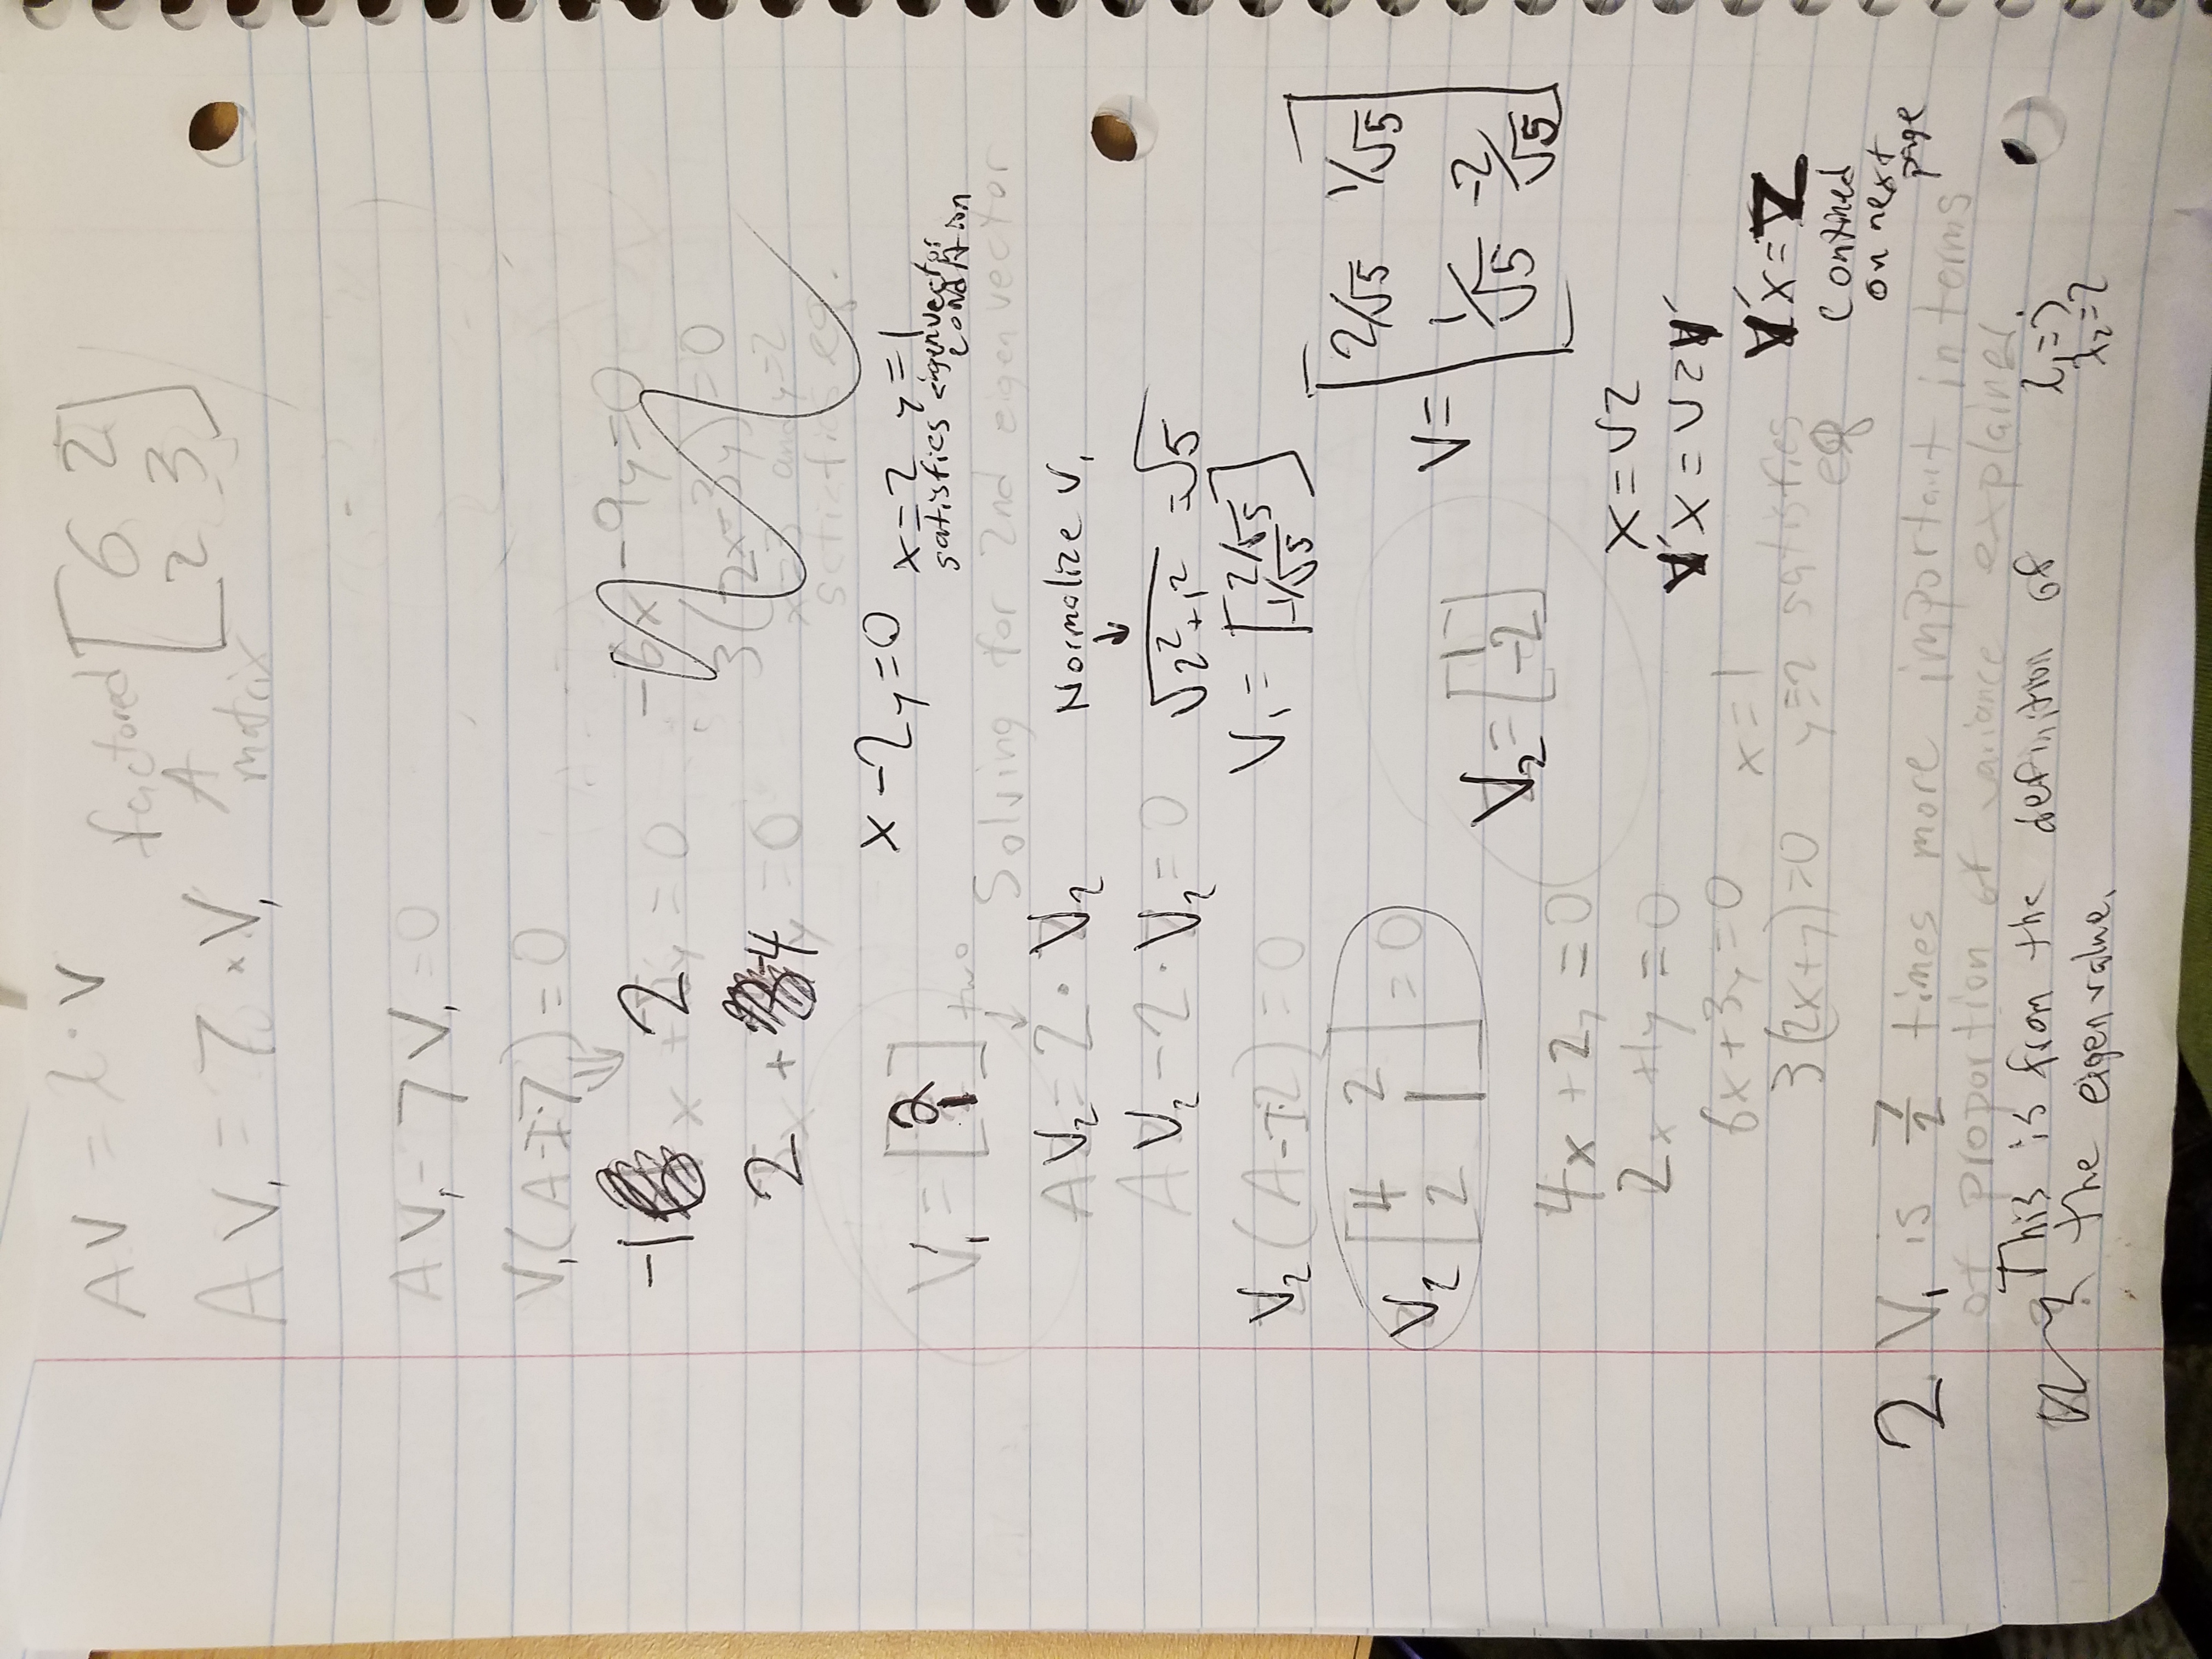 AV = λ · V
factored A matrix [6 2
2 3]
AV₁ = 7 · V₁
AV₁ - 7V₁ = 0
V₁(A-I·7) = 0
-1 2 = 0
2 + -4 = 0
-6x - 9y = 0
3(-2x-3y) = 0
x=3 and y=2
x - 2y = 0
x=2 y=1
satisfies eigenvector
condition
V₁ = [2
1]
two
Solving for 2nd eigenvector
AV₂ = 2 · V₂
AV₂ - 2 · V₂ = 0
Normalize V₁
√2²+1² = √5
V₁ = [2/√5
1/√5]
V₂(A-I·2) = 0
V₂ [4 2
2 1] = 0
V₂ = [1
-2]
V = [2/√5 1/√5
1/√5 -2/√5]
4x + 2y = 0
2x + 1y = 0
6x + 3y = 0
3(2x+y) = 0
x = 1
y = 2 satisfies
eq
X = VZ
V'X = VZV'
V'X = Z
Contined
on next
page
2 V₁ is 7/2 times more important in terms
of proportion of variance explained.
This is from the definition of
the eigenvalue.
λ₂=2